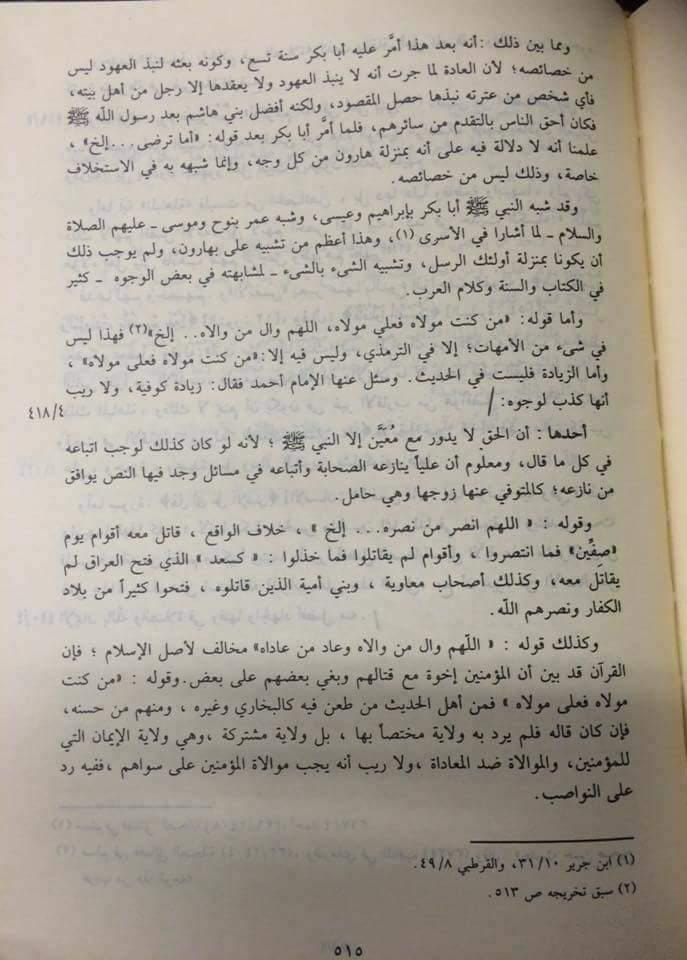 ومما بين ذلك : أنه بعد هذا أمَّر عليه أبا بكر سنة تسع، وكونه بعثه لنبذ العهود ليس
من خصائصه؛ لأن العادة لما جرت أنه لا ينبذ العهود ولا يعقدها إلا رجل من أهل بيته،
فأي شخص من عترته نبذها حصل المقصود، ولكنه أفضل بني هاشم بعد رسول الله ﷺ
فكان أحق الناس بالتقدم من سائرهم، فلما أمَّر أبا بكر بعد قوله: «أما ترضى...إلخ» ،
علمنا أنه لا دلالة فيه على أنه بمنزلة هارون من كل وجه، وإنما شبهه به في الاستخلاف
خاصة، وذلك ليس من خصائصه.
وقد شبه النبي ﷺ أبا بكر بإبراهيم وعيسى، وشبه عمر بنوح وموسى ـ عليهم الصلاة
والسلام ـ لما أشارا في الأسرى (١)، وهذا أعظم من تشبيه على بهارون، ولم يوجب ذلك
أن يكونا بمنزلة أولئك الرسل، وتشبيه الشىء بالشىء ـ لمشابهته في بعض الوجوه ـ كثير
في الكتاب والسنة وكلام العرب.
وأما قوله: «من كنت مولاه فعلي مولاه، اللهم وال من والاه.. إلخ»(٢) فهذا ليس
في شىء من الأمهات؛ إلا في الترمذي، وليس فيه إلا:«من كنت مولاه فعلى مولاه» ،
وأما الزيادة فليست في الحديث. وسئل عنها الإمام أحمد فقال: زيادة كوفية، ولا ريب
أنها كذب لوجوه: /
٤١٨/٤
أحدها : أن الحق لا يدور مع مُعَيَّن إلا النبي ﷺ ؛ لأنه لو كان كذلك لوجب اتباعه
في كل ما قال، ومعلوم أن علياً ينازعه الصحابة وأتباعه في مسائل وجد فيها النص يوافق
من نازعه؛ كالمتوفي عنها زوجها وهي حامل.
وقوله : « اللهم انصر من نصره... إلخ » ، خلاف الواقع ، قاتل معه أقوام يوم
«صِفِّين» فما انتصروا ، وأقوام لم يقاتلوا فما خذلوا : « كسعد » الذي فتح العراق لم
يقاتل معه، وكذلك أصحاب معاوية ، وبني أمية الذين قاتلوه ، فتحوا كثيراً من بلاد
الكفار ونصرهم الله.
وكذلك قوله : « اللّهم وال من والاه وعاد من عاداه» مخالف لأصل الإسلام ؛ فإن
القرآن قد بين أن المؤمنين إخوة مع قتالهم وبغي بعضهم على بعض.وقوله : «من كنت
مولاه فعلى مولاه » فمن أهل الحديث من طعن فيه كالبخاري وغيره ، ومنهم من حسنه،
فإن كان قاله فلم يرد به ولاية مختصاً بها ، بل ولاية مشتركة ،وهي ولاية الإيمان التي
للمؤمنين، والموالاة ضد المعاداة ،ولا ريب أنه يجب موالاة المؤمنين على سواهم ،ففيه رد
على النواصب.
(١) ابن جرير ٣١/١٠، والقرطبي ٤٩/٨.
(٢) سبق تخريجه ص ٥١٣.
٥١٥